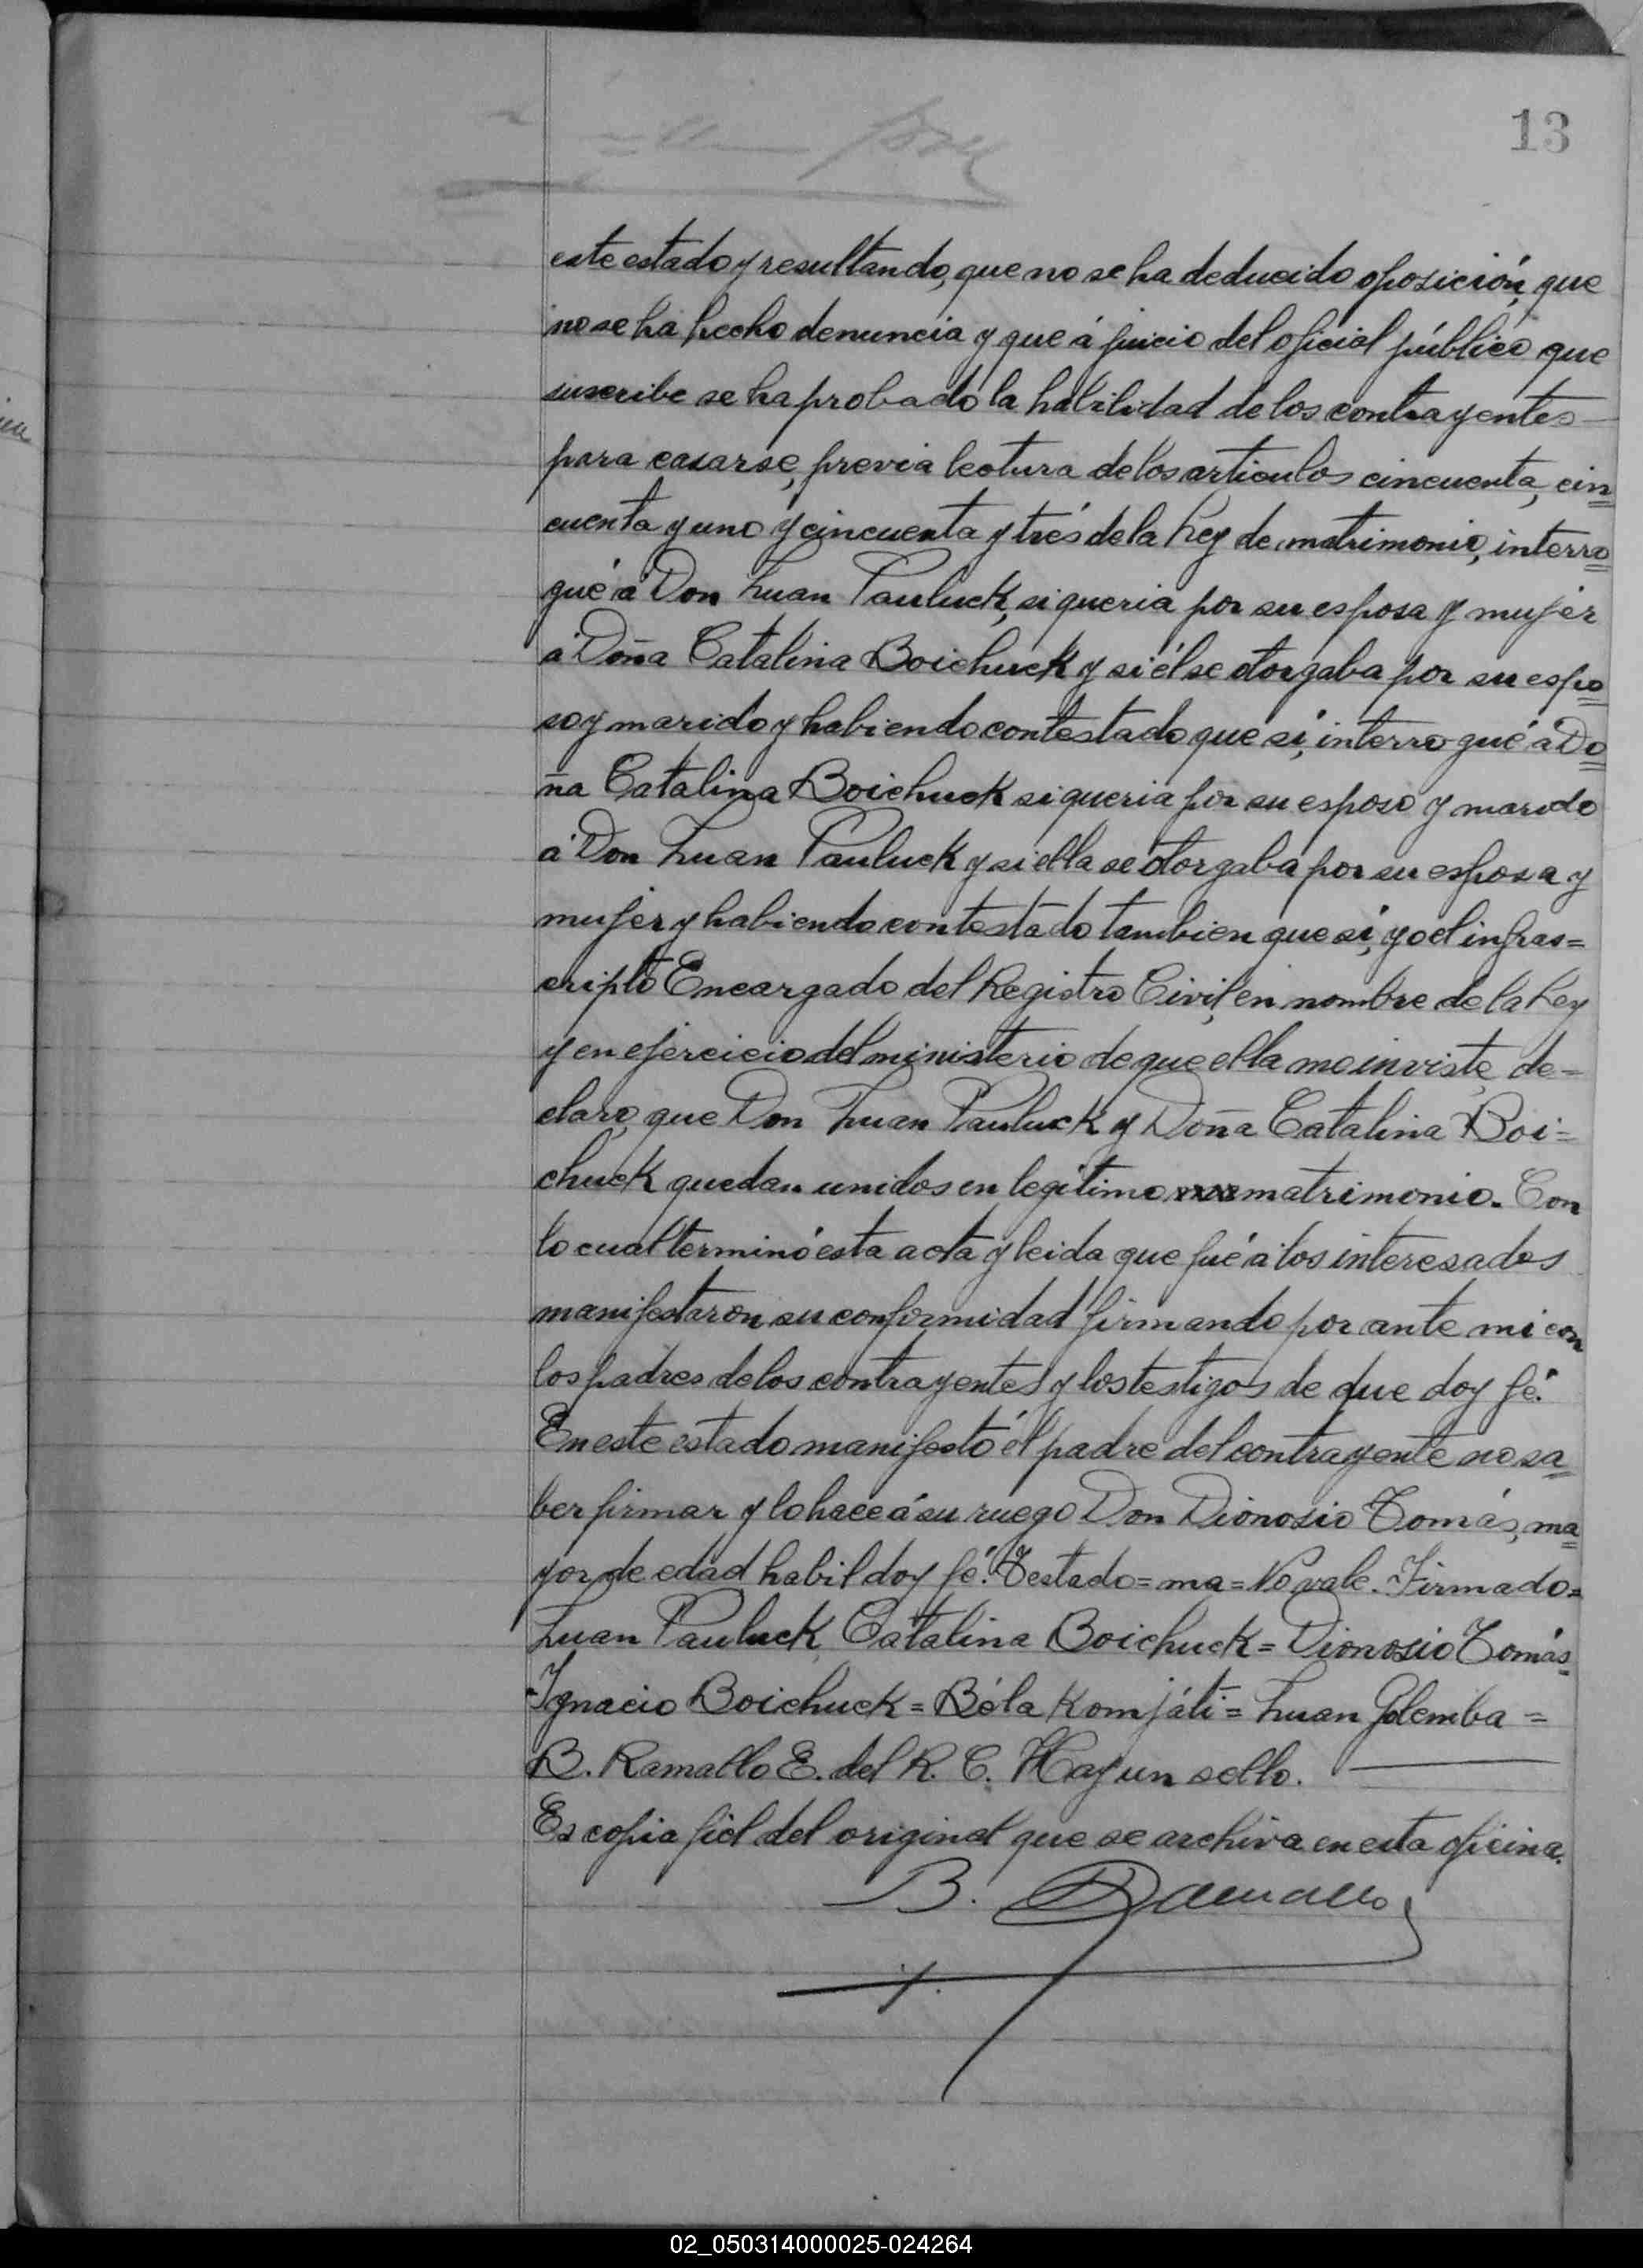 13
este estado y resultando, que no se ha deducido oposición, que
no se ha hecho denuncia y que á juicio del oficial público que
suscribe se ha probado la habilidad de los contrayentes
para casarse, previa lectura de los articulos cincuenta, cin
cuenta y uno y cincuenta y trés de la Ley de matrimonio, interro
gué á Don Juan Pauluck, si queria por su esposa y mujér
á Doña Catalina Boichuck y si él se otorgaba por su espo
so y marido y habiendo contestado que si, interrogué á Do
ña Catalina Boichuck si queria por su esposo y marido
á Don Juan Pauluck y si ella se otorgaba por su esposa y
mujer y habiendo contestado tambien que si, yo el infras=
cripto Encargado del Registro Civil, en nombre de la Ley
y en ejercicio del ministerio de que ella me inviste, de=
claro, que Don Juan Pauluck y Doña Catalina Boi=
chuck quedan unidos en legítimo matrimonio. Con
lo cual terminó esta acta y leida que fué á los interesados
manifestaron su conformidad firmando por ante mi con
los padres de los contrayentes y los testigos de que doy fé.
En este estado manifestó él padre del contrayente no sa
ber firmar y lo hace á su ruego Don Dionosio Tomás, ma
yor de edad habil doy fé. Testado=ma=No vale. Firmado=
Juan Pauluck Catalina Boichuck=Dionosio Tomás=
Ignacio Boichuck=Béla Komjáti=Juan Golemba=
B. Ramallo E. del R. C. Hay un sello.
Es copia fiel del original que se archiva en esta oficina.
B. Ramallo
02_050314000025-024264